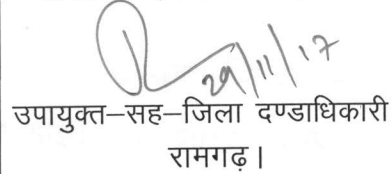 29/11/17
उपायुक्त–सह–जिला दण्डाधिकारी
रामगढ़।